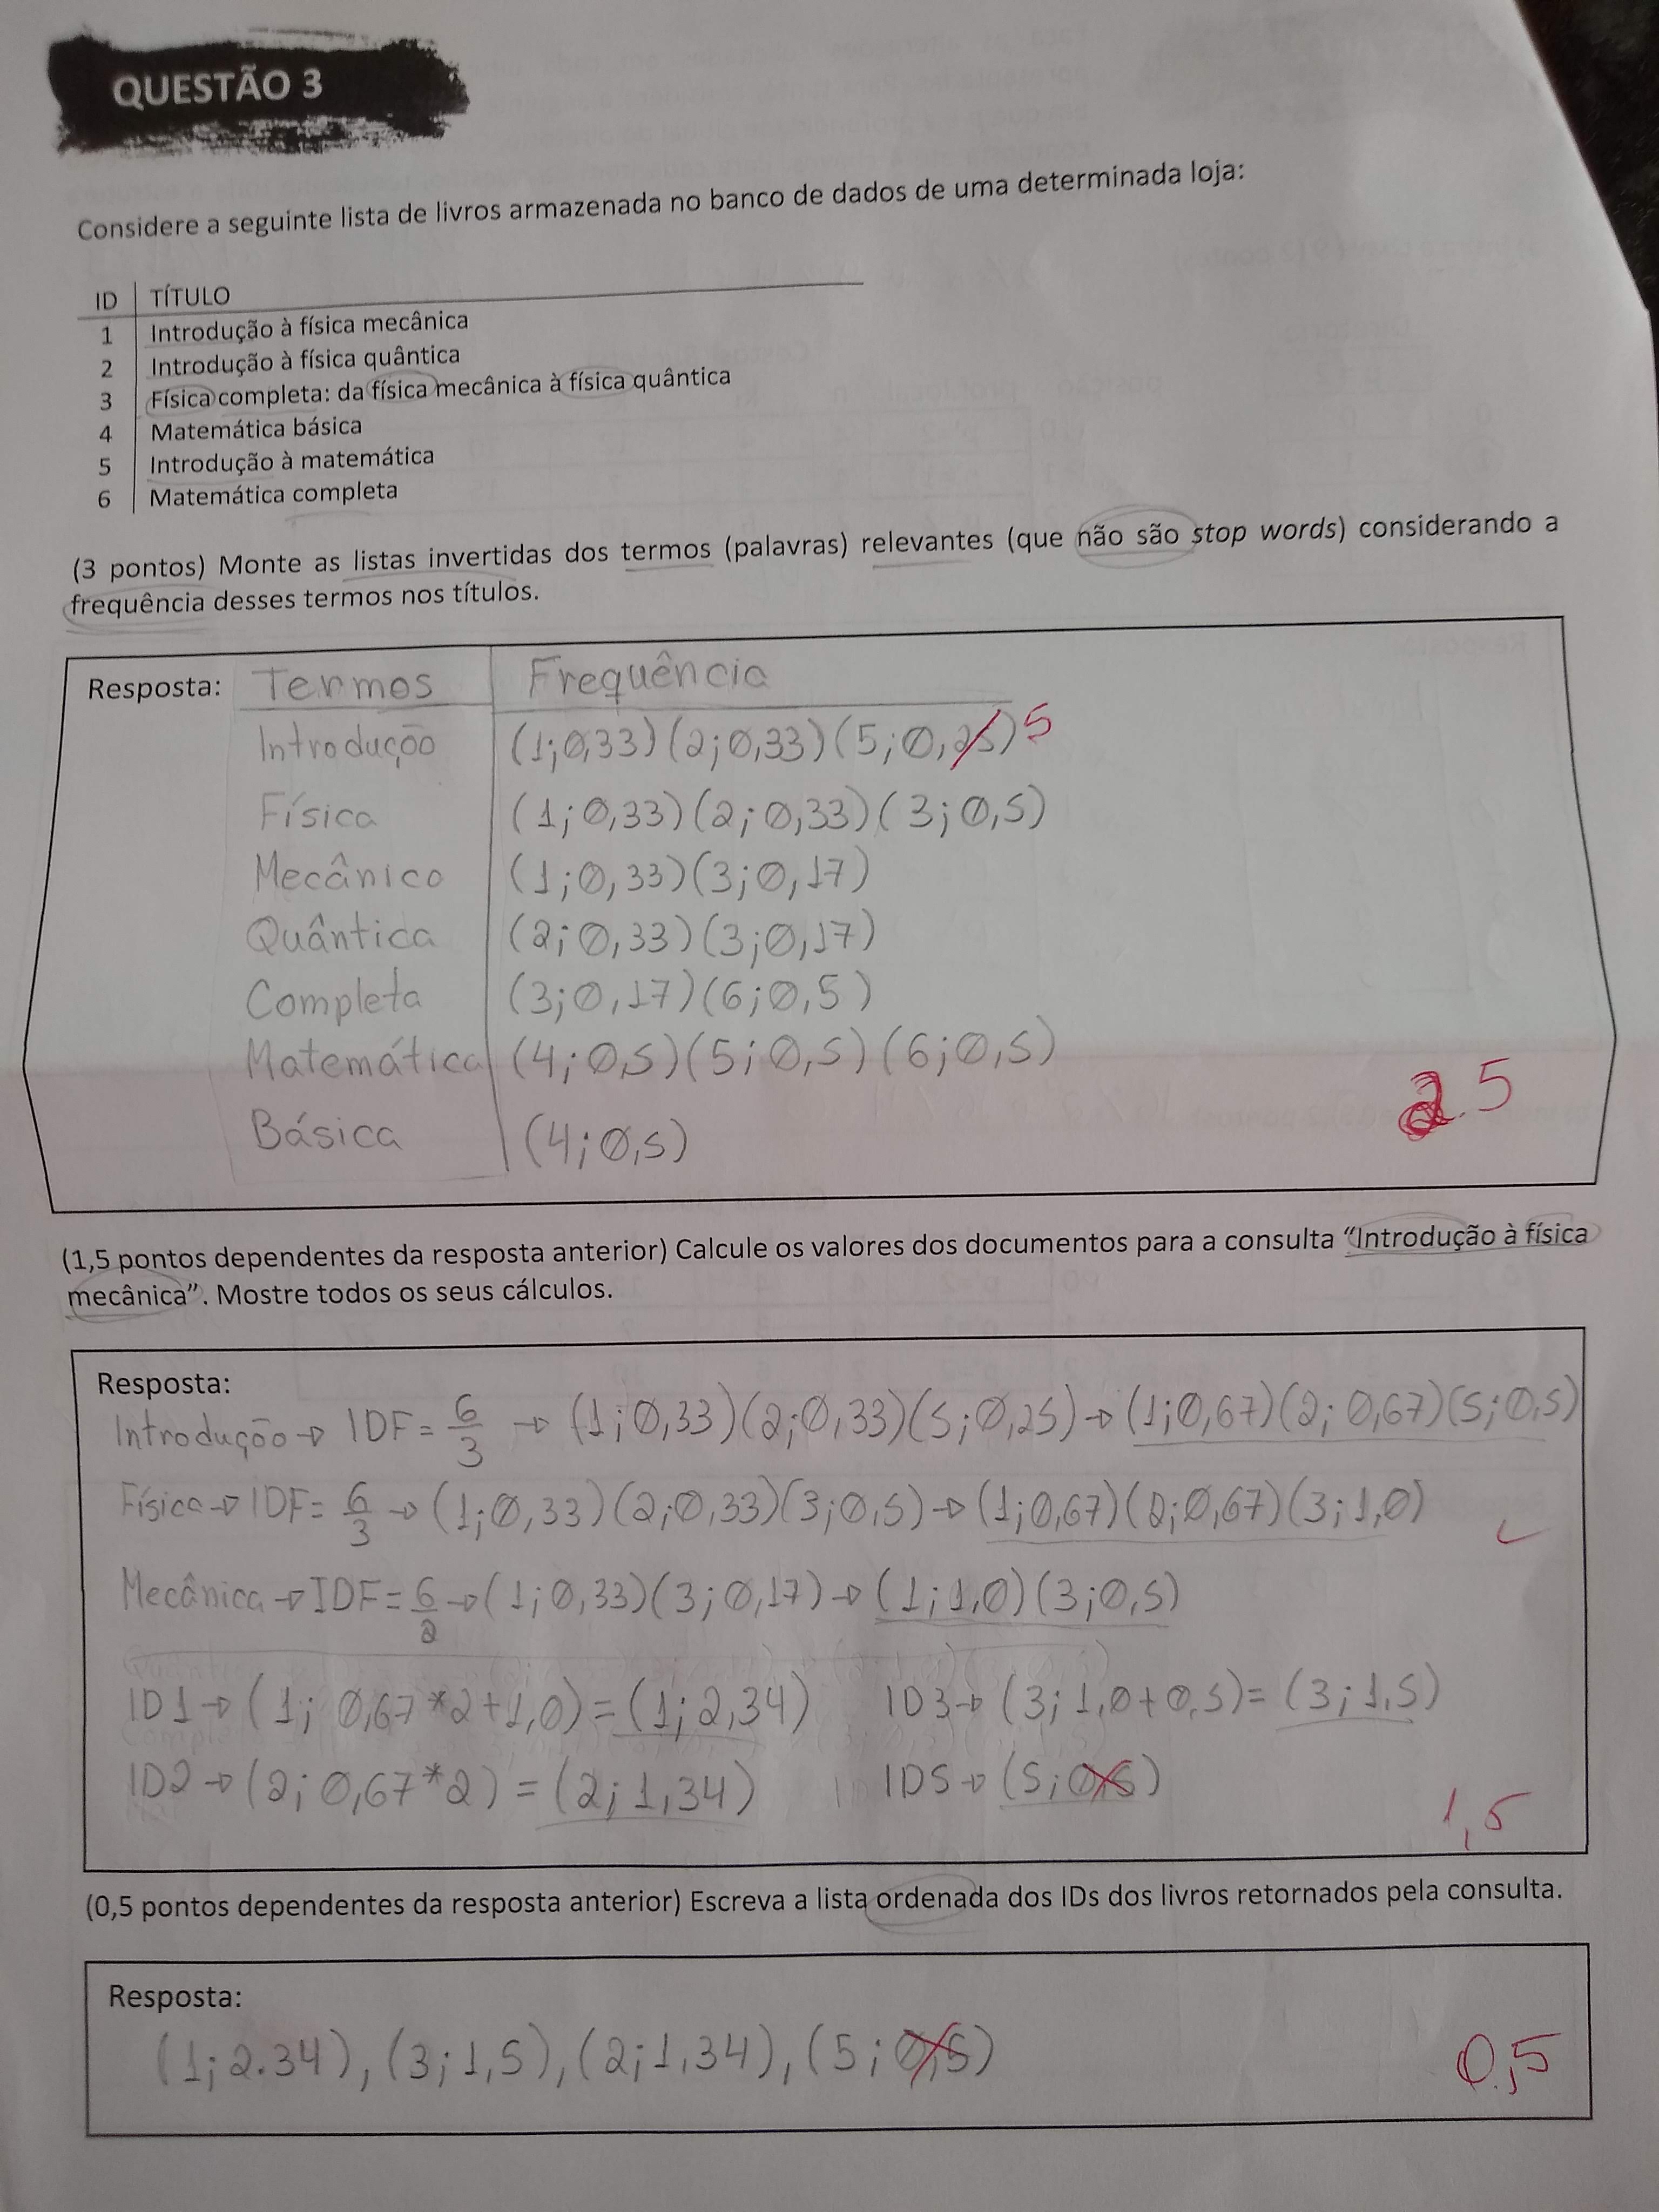 QUESTÃO 3
Considere a seguinte lista de livros armazenada no banco de dados de uma determinada loja:
ID TÍTULO
1 Introdução à física mecânica
2 Introdução à física quântica
3 Física completa: da física mecânica à física quântica
4 Matemática básica
5 Introdução à matemática
6 Matemática completa
(3 pontos) Monte as listas invertidas dos termos (palavras) relevantes (que não são stop words) considerando a
frequência desses termos nos títulos.
Resposta: Termos Frequência
Introdução (1;0,33)(2;0,33)(5;0,25) 5
Física (1;0,33)(2;0,33)(3;0,5)
Mecânico (1;0,33)(3;0,17)
Quântica (2;0,33)(3;0,17)
Completa (3;0,17)(6;0,5)
Matemática (4;0,5)(5;0,5)(6;0,5)
2.5
Básica (4;0,5)
(1,5 pontos dependentes da resposta anterior) Calcule os valores dos documentos para a consulta “Introdução à física
mecânica”. Mostre todos os seus cálculos.
Resposta:
Introdução → IDF = 6/3 → (1;0,33)(2;0,33)(5;0,25) → (1;0,67)(2;0,67)(5;0,5)
Física → IDF = 6/3 → (1;0,33)(2;0,33)(3;0,5) → (1;0,67)(2;0,67)(3;1,0)
Mecânica → IDF = 6/2 → (1;0,33)(3;0,17) → (1;1,0)(3;0,5)
ID1 → (1; 0,67*2+1,0) = (1;2,34) ID3 → (3; 1,0+0,5) = (3;1,5)
ID2 → (2; 0,67*2) = (2; 1,34) ID5 → (5;0,5)
1,5
(0,5 pontos dependentes da resposta anterior) Escreva a lista ordenada dos IDs dos livros retornados pela consulta.
Resposta:
(1;2.34), (3;1,5), (2;1,34), (5;0,5)
0,5